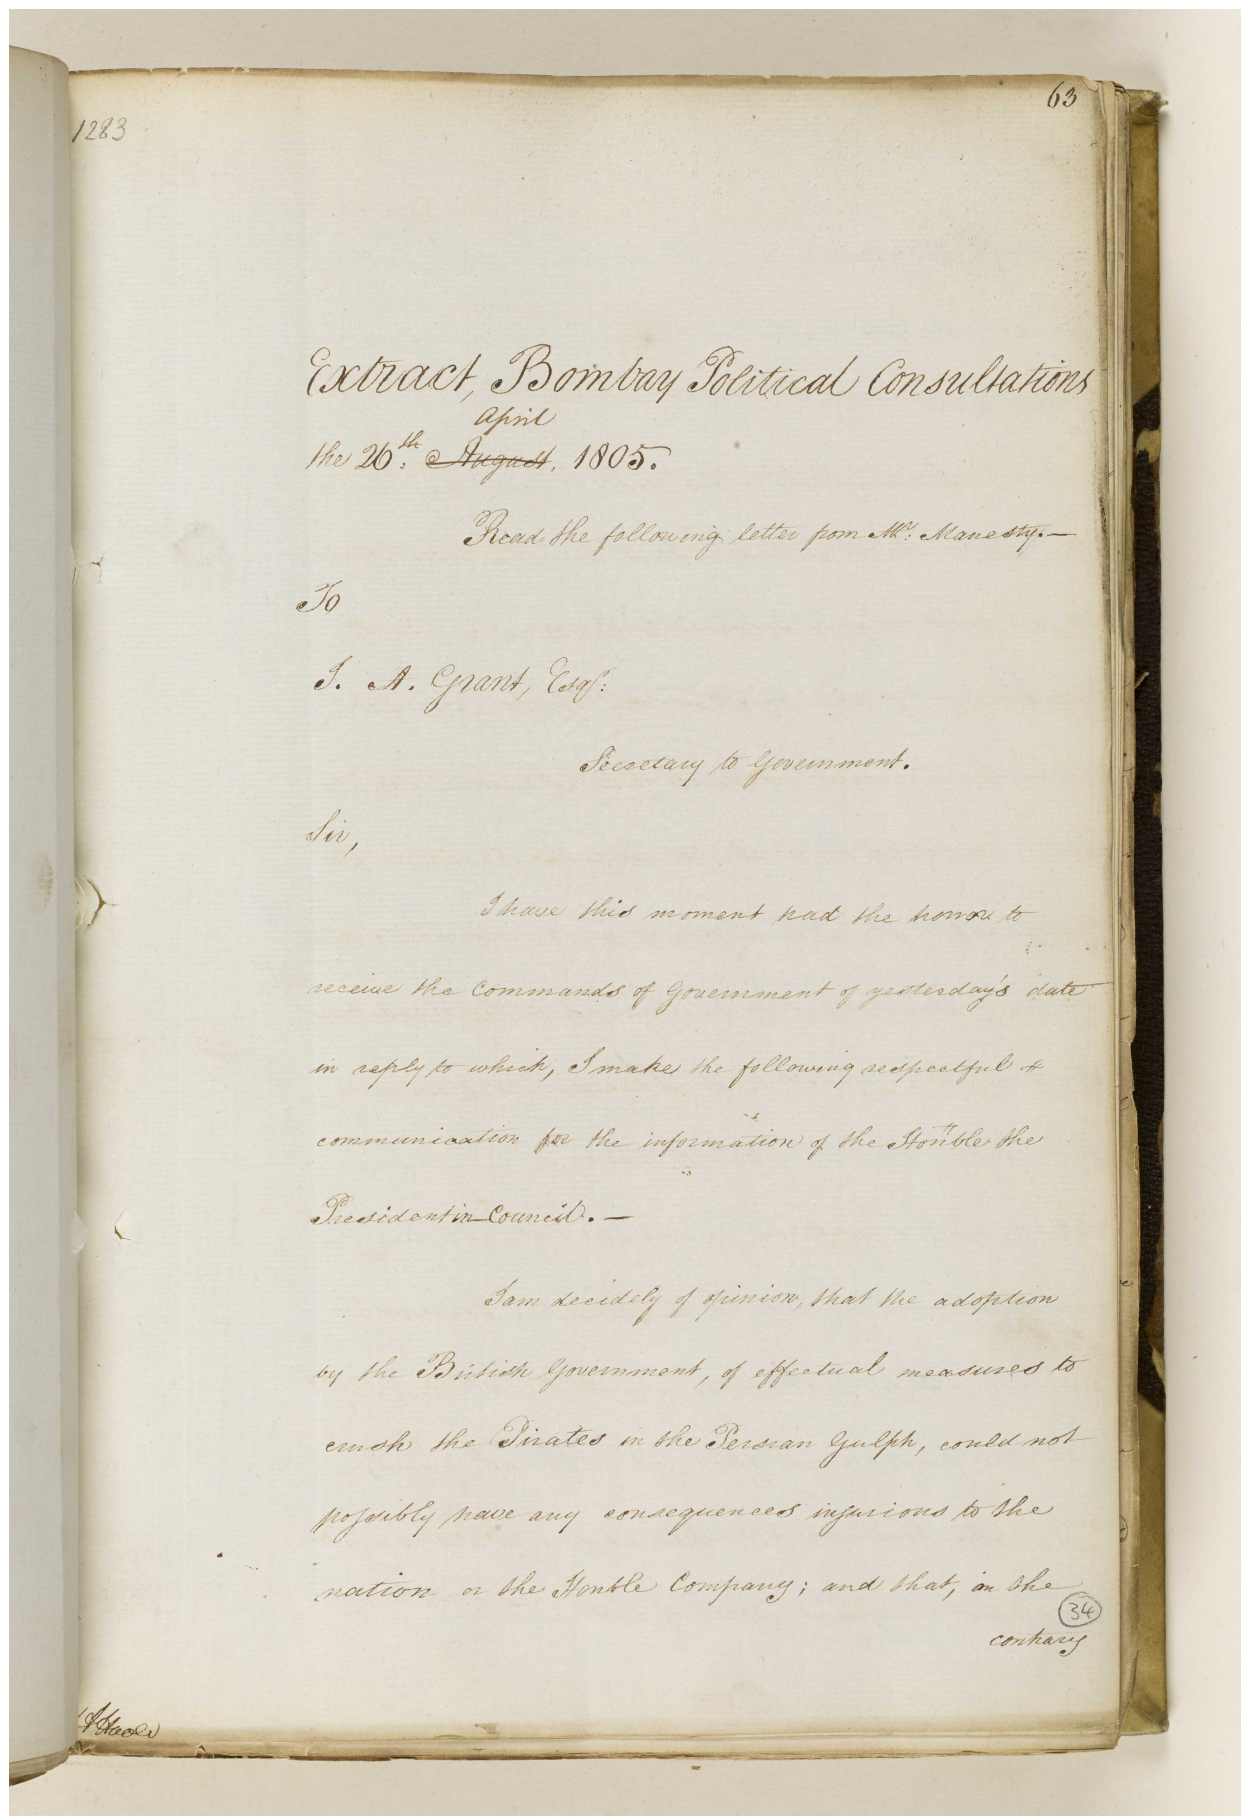 63
1283
Extract, Bombay Political Consultations
April
the 26th: August, 1805.
Read the following letter from Mr: Manesty. —
To
J. A. Grant, Esqr:
Secretary to Government.
Sir,
I have this moment had the honor to
receive the Commands of Government of yesterday's date
in reply to which, I make the following respectful
communication for the information of the Honble the
President in Council. —
I am decidely of opinion, that the adoption
by the British Government, of effectual measures to
crush the Pirates in the Persian Gulph, could not
possibly have any consequences injurious to the
nation or the Honble Company; and that, on the
34
contrary